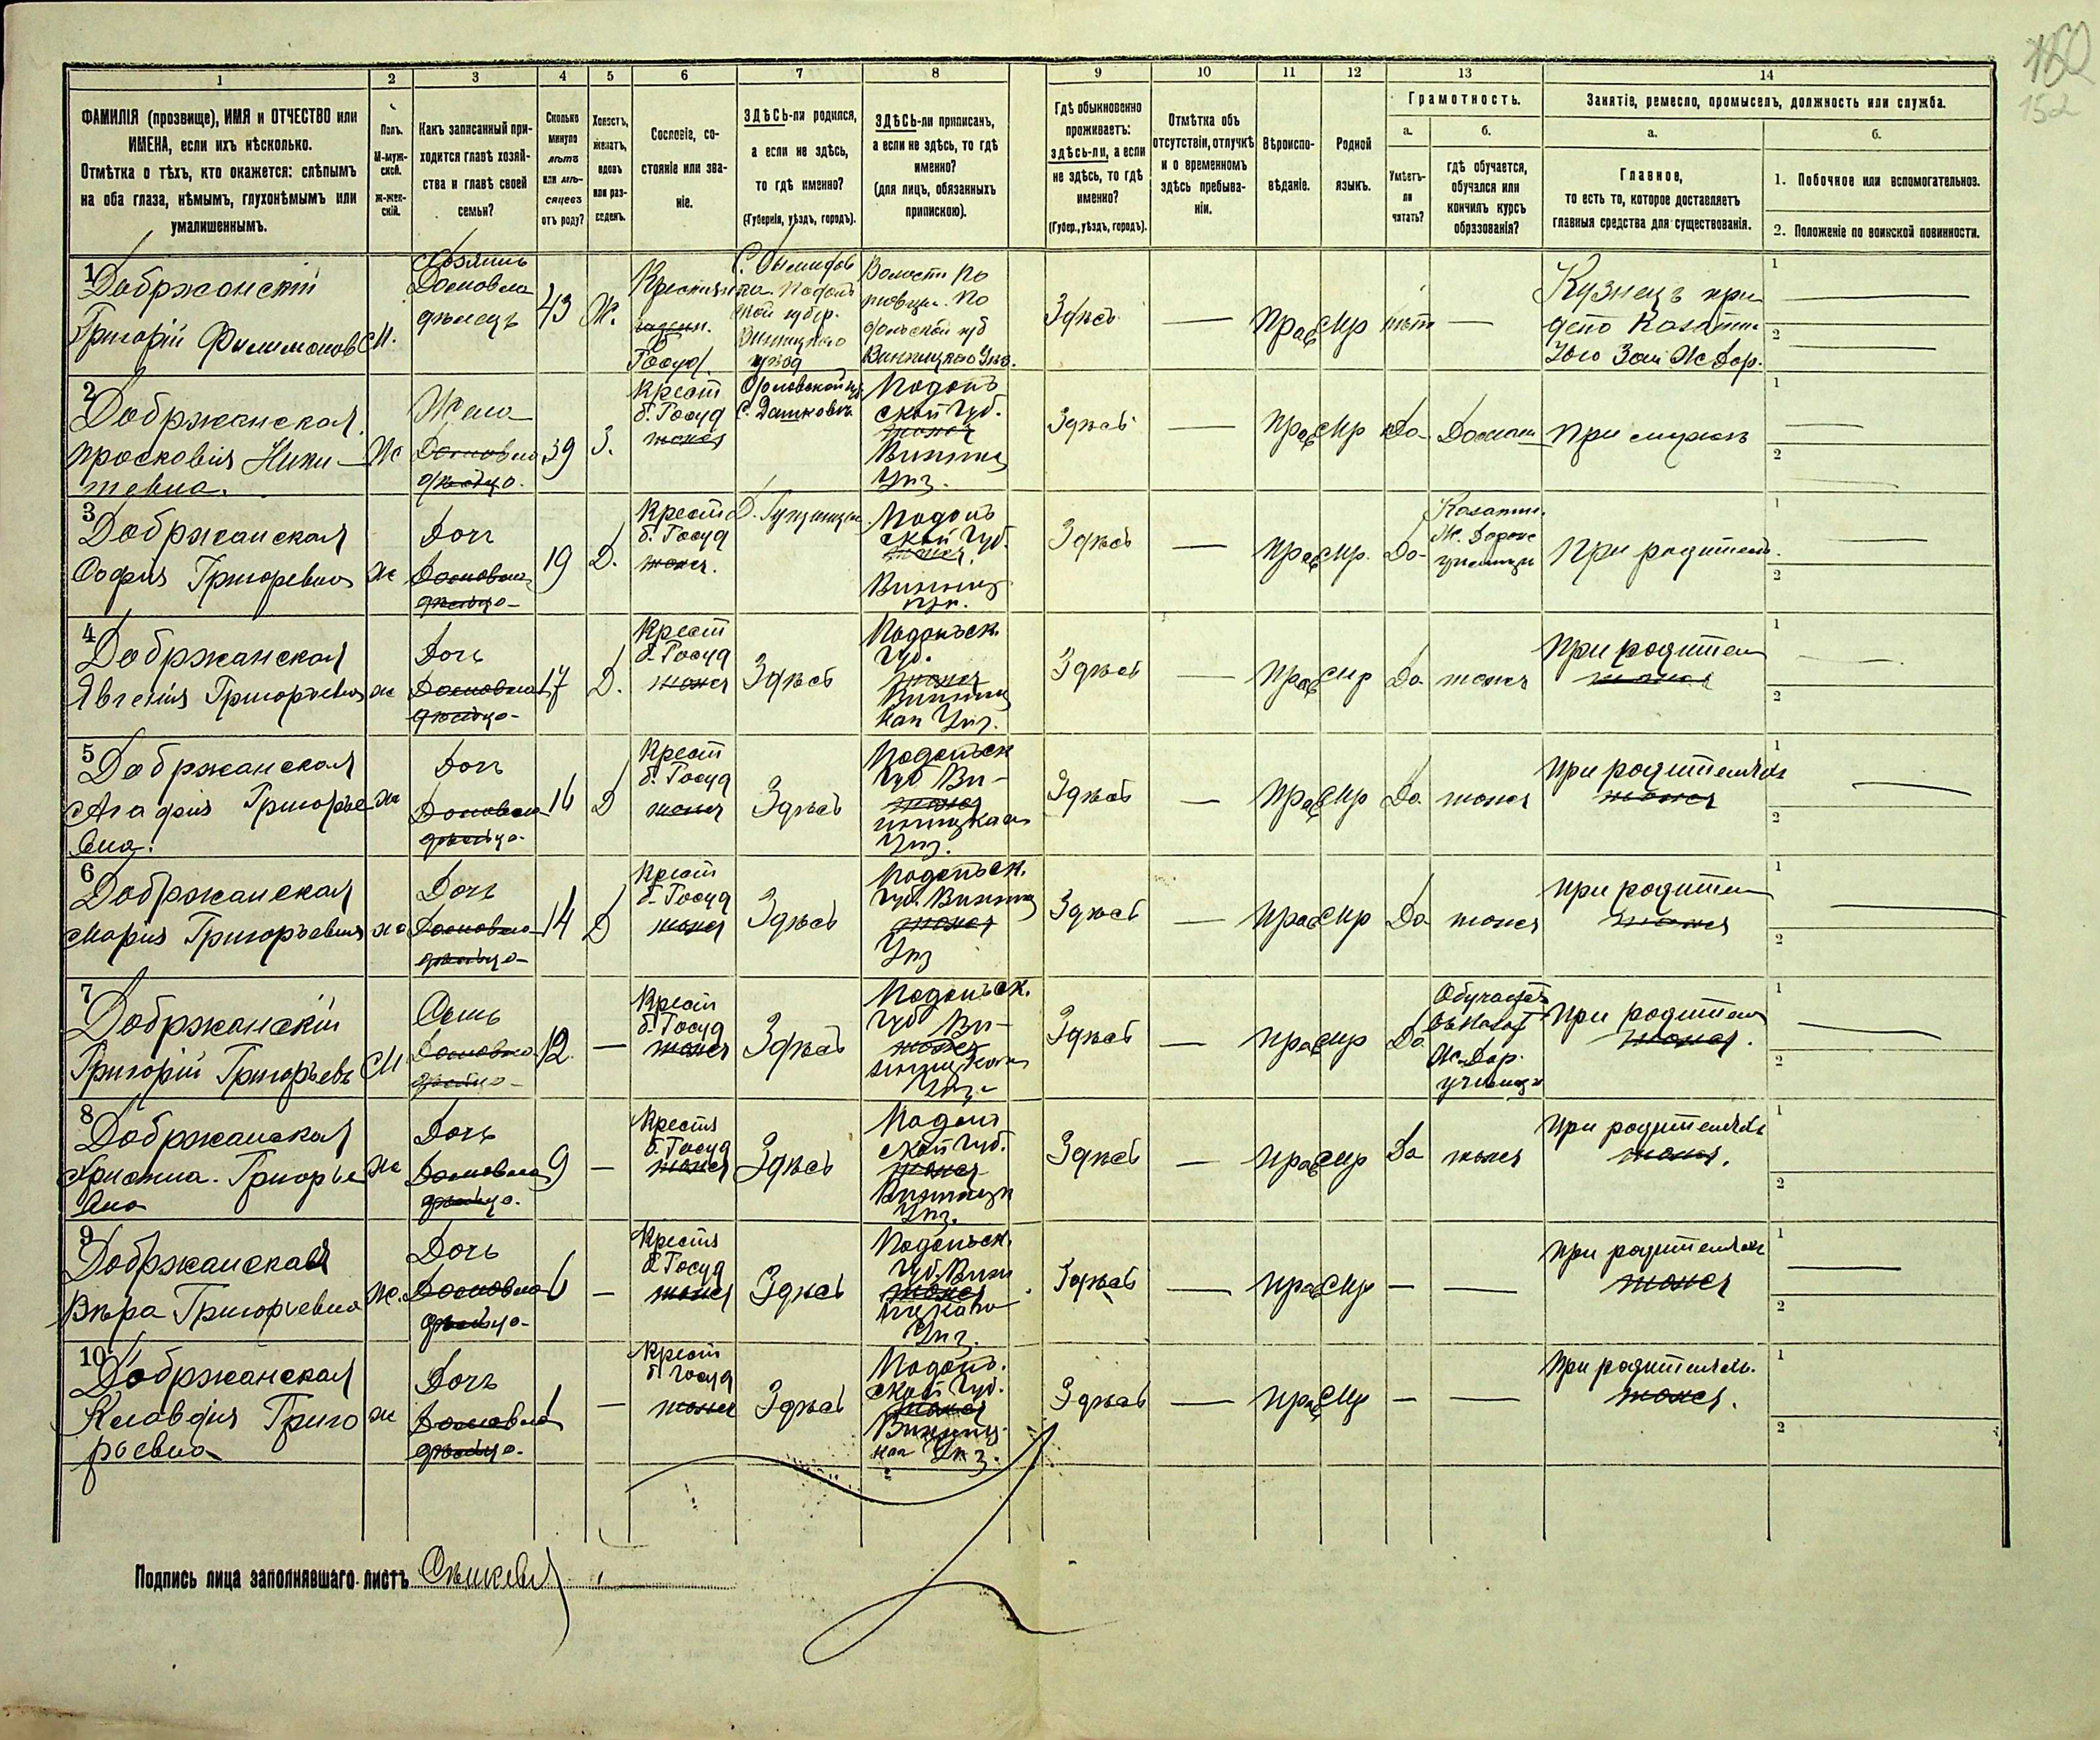 180
152
1
2
3
4
5
6
7
8
9
10
11
12
13
14
ФАМИЛІЯ (прозвище), ИМЯ и ОТЧЕСТВО или
ИМЕНА, если ихъ нѣсколько.
Отмѣтка о тѣхъ, кто окажется: слѣпымъ
на оба глаза, нѣмымъ, глухонѣмымъ или
умалишеннымъ.
Полъ.
М-муж-
ской.
ж-жен-
скій.
Какъ записанный при-
ходится главѣ хозяй-
ства и главѣ своей
семьи?
Сколько
минуло
лѣтъ
или мѣ-
сяцевъ
отъ роду?
Холостъ,
женатъ,
вдовъ
или раз-
веденъ.
Сословіе, со-
стояніе или зва-
ніе.
ЗДѢСЬ-ли родился,
а если не здѣсь,
то гдѣ именно?
(Губернія, уѣздъ, городъ).
ЗДѢСЬ-ли приписанъ,
а если не здѣсь, то гдѣ
именно?
(для лицъ, обязанныхъ
припискою).
Гдѣ обыкновенно
проживаетъ:
здѣсь-ли, а если
не здѣсь, то гдѣ
именно?
(Губер., уѣздъ, городъ).
Отмѣтка объ
отсутствіи, отлучкѣ
и о временномъ
здѣсь пребыва-
ніи.
Вѣроиспо-
вѣданіе.
Родной
языкъ.
Грамотность.
а.
Умѣетъ-
ли
читать?
б.
гдѣ обучается,
обучался или
кончилъ курсъ
образованія?
Занятіе, ремесло, промыселъ, должность или служба.
а.
Главное,
то есть то, которое доставляетъ
главныя средства для существованія.
б.
1. Побочное или вспомогательное.
2. Положеніе по воинской повинности.
1
Добржанскій
Григорій Филимоновъ
М.
Хозяинъ
Домовла
дѣлецъ
43
Ж.
Госуд.
Подоль
ской губер.
Винницкаго
уѣзд
Волости
Винницкаго Уѣз.
Здѣсь
—
Прав
Мр
нѣт
—
Кузнецъ при
депо Казатин
Ж Дор.
1
2
2
Добржанская
Просковія Ники-
тевна.
Ж
Жена
Домовла
дѣльца.
39
З.
Крест
б. Госуд
тоже
С. Дашковъ
Подоль
ской Губ.
тоже
Винниц
Уѣз.
Здѣсь
—
Прав
Мр
Да
Дома
При мужѣ
1
2
3
Добржанская
Софія Григоревна
ж
Доч
Домовла
дѣльца
19
Д.
Крест
б. Госуд
тоже.
Подоль
ской Губ.
тоже.
Винниц
Уѣз.
Здѣсь
—
Прав
Мр.
Да
Казатин.
Ж. Дорож
училищи
При родител.
1
2
4
Добржанская
Явгенія Григорьевна
ж
Дочь
Домовла
дѣльца
17
Д.
Крест
б. Госуд
тоже
Здѣсь
Подольск.
Губ.
тоже
Винниц
каго Уѣз.
Здѣсь
—
Прав
Мр
Да
тоже
При родител
тоже
1
2
5
Добржанская
Агафія Григорье
вна.
ж
Доч
Домовла
дѣльца
16
Д
Крест
б. Госуд
тоже
Здѣсь
Подольск
Губ Ви-
тоже
нницкаго
Уѣз.
Здѣсь
—
Прав
Мр
Да
тоже
При родителяхъ
тоже
1
2
6
Добржанская
Марія Григорьевна
ж
Дочь
Домовла
дѣльца
14
Д
Крест
б. Госуд
тоже
Здѣсь
Подольск.
Губ. Винниц
тоже
Уѣз
Здѣсь
—
Прав
Мр
Да
тоже
При родител
тоже
1
2
7
Добржанскій
Григорій Григорьевъ
М
Сынъ
Домовла
дѣльца
12
—
Крест
б. Госуд
тоже
Здѣсь
Подольск.
Губ Ви-
тоже
нницкаго
Уѣз.
Здѣсь
—
Прав
Мр
Да
Обучается
въ Казат
Ж. Дор.
училищи
При родител
тоже.
1
2
8
Добржанская
Христина Григорье
вна
ж
Дочь
Домовла
дѣльца.
9
—
Крестя
б. Госуд
тоже
Здѣсь
Подоль
ской Губ.
тоже
Винницк
Уѣз.
Здѣсь
—
Прав
Мр
Да
тоже
При родителяхъ
тоже.
1
2
9
Добржанская
Вѣра Григорьевна
Ж.
Дочь
Домовла
дѣльца
6
—
Крестя
б. Госуд
тоже
Здѣсь
Подольск.
Губ. Винн
тоже
ицкаго
Уѣз.
Здѣсь
—
Прав
Мр
—
—
При родителях
тоже
1
2
10
Добржанская
Клавдія Григо
рьевна
ж
Дочь
Домовла
дѣльца.
1
—
Крест
б. Госуд
тоже
Здѣсь
Подоль.
ской Губ.
тоже
Винниц
каго Уѣз.
Здѣсь
—
Прав
Мр
—
—
При родителях.
тоже.
1
2
Подпись лица заполнявшаго листъ